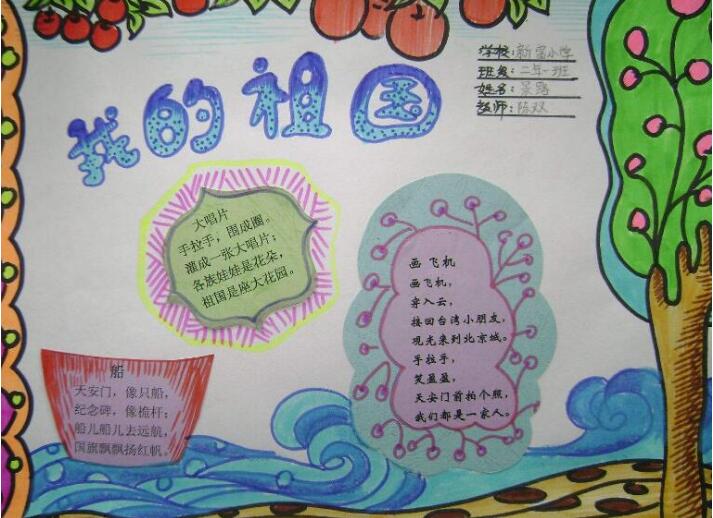 我的祖国
学校:新宝小学
班级:二年一班
姓名:景路
教师:陈双
大唱片
手拉手,围成圈。
灌成一张大唱片;
各族娃娃是花朵,
祖国是座大花园。
画飞机
画飞机,
穿入云,
接回台湾小朋友,
观光来到北京城。
手拉手,
笑盈盈,
天安门前拍个照,
我们都是一家人。
船
天安门,像只船,
纪念碑,像桅杆;
船儿船儿去远航,
国旗飘飘扬红帆。